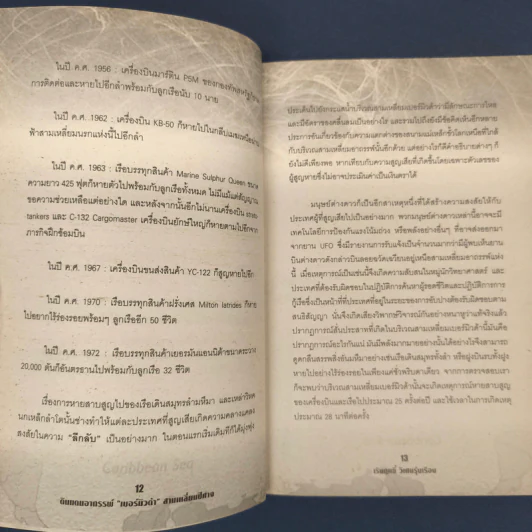 ในปี ค.ศ. 1956 : เครื่องบินมาร์ติน P5M ของกองทัพสหรัฐก็ขาด
การติดต่อและหายไปอีกลำพร้อมกับลูกเรือนับ 10 นาย
ในปี ค.ศ. 1962 : เครื่องบิน KB-50 ก็หายไปในกลีบเมฆเหนือน่าน
ฟ้าสามเหลี่ยมนรกแห่งนี้ไปอีกลำ
ในปี ค.ศ. 1963 : เรือบรรทุกสินค้า Marine Sulphur Queen ขนาด
ความยาว 425 ฟุตก็หายตัวไปพร้อมกับลูกเรือทั้งหมด ไม่มีแม้แต่สัญญาณ
ขอความช่วยเหลือแต่อย่างใด และหลังจากนั้นอีกไม่นานเครื่องบิน
tankers และ C-132 Cargomaster เครื่องบินยักษ์ใหญ่ก็หายตามไปอีกจาก
ภารกิจฝึกซ้อมบิน
ในปี ค.ศ. 1967 : เครื่องบินขนส่งสินค้า YC-122 ก็สูญหายไปอีก
ในปี ค.ศ. 1970 : เรือบรรทุกสินค้าฝรั่งเศส Milton Iatrides ก็หาย
ไปอย่างไร้ร่องรอยพร้อมๆ ลูกเรืออีก 50 ชีวิต
ในปี ค.ศ. 1972 : เรือบรรทุกสินค้าเยอรมันแอนนิต้าขนาดระวาง
20,000 ตันก็อันตรธานไปพร้อมกับลูกเรือ 32 ชีวิต
เรื่องการหายสาบสูญไปของเรือเดินสมุทรล่ามทีมา และเหล่าวิหค
นกเหล็กลำโตนั้นช่างทำให้แต่ละประเทศที่สูญเสียเกิดความคลางแคลง
สงสัยในความ "ลึกลับ" เป็นอย่างมาก ในตอนแรกเริ่มเดิมทีก็ได้มุ่ง
12
ถินแดนอาถรรพ์ "เบอร์มิวด้า" สามเหลี่ยมปีศาจ
ประเด็นไปยังกระแสน้ำบริเวณสามเหลี่ยมเบอร์มิวด้าว่ามีลักษณะทางไหล
และมีอัตราของคลื่นลมเป็นอย่างไร และรวมไปถึงยังมีข้อคิดเห็นอีกหลาย
ประการอันเกี่ยวข้องกับความแตกต่างของสนามแม่เหล็กขั้วโลกเหนือที่ใกล้
กับบริเวณสามเหลี่ยมอาถรรพ์นี้อีกด้วย แต่อย่างไรก็ดีคำอธิบายต่างๆ ก็
ยังไม่ดีเพียงพอ หากเทียบกับความสูญเสียที่เกิดขึ้นโดยเฉพาะตัวเลขของ
ผู้สูญหายซึ่งไม่อาจประเมินค่าเป็นเงินตราได้
มนุษย์ต่างดาวก็เป็นอีกสาเหตุหนึ่งที่ได้สร้างความสงสัยให้กับ
ประเทศผู้ที่สูญเสียไปเป็นอย่างมาก พวกมนุษย์ต่างดาวเหล่านี้อาจจะมี
เทคโนโลยีการป้องกันแรงโน้มถ่วง หรือพลังอย่างอื่นๆ ที่อาจส่งออกมา
จากยาน UFO ซึ่งมีรายงานการรับแจ้งเป็นจำนวนมากว่ามีผู้พบเห็นยาน
บินต่างดาวดังกล่าวบินลอยอวดโฉมอยู่เหนือสามเหลี่ยมอาถรรพ์แห่ง
นี้ เมื่อเหตุการณ์เป็นเช่นนี้จึงเกิดความสับสนในหมู่นักวิทยาศาสตร์ และ
ประเทศที่ต้องรับผิดชอบในปฏิบัติการค้นหาผู้รอดชีวิตและปฏิบัติการการ
กู้เรือซึ่งเป็นหน้าที่ที่ประเทศที่อยู่ในระยะของการอับปางต้องรับผิดชอบตาม
สนธิสัญญา นั่นจึงเกิดเรื่องวิพากษ์วิจารณ์กันอย่างหนาหูว่าแท้จริงแล้ว
ปรากฏการณ์สั่นประสาทที่เกิดในบริเวณสามเหลี่ยมเบอร์มิวด้านี้มันคือ
ปรากฏการณ์อะไรกันแน่ มันมีพลังมากมายอย่างนั้นได้อย่างไรจึงสามารถ
ดูดกลืนสรรพสิ่งอันมหึมาอย่างเช่นเรือเดินสมุทรทั้งลำ หรือฝูงบินรบทั้งฝูง
หายไปอย่างไร้ร่องรอยในเพียงแค่ชั่วพริบตาเดียว จากการทดสอบเรา
ก็จะพบว่าบริเวณสามเหลี่ยมเบอร์มิวด้านั้นจะเกิดเหตุการณ์หายสาบสูญ
ของเครื่องบินและเรือไปประมาณ 25 ครั้งต่อปี และใช้เวลาในการเกิดเหตุ
ประมาณ 26 นาทีต่อครั้ง
13